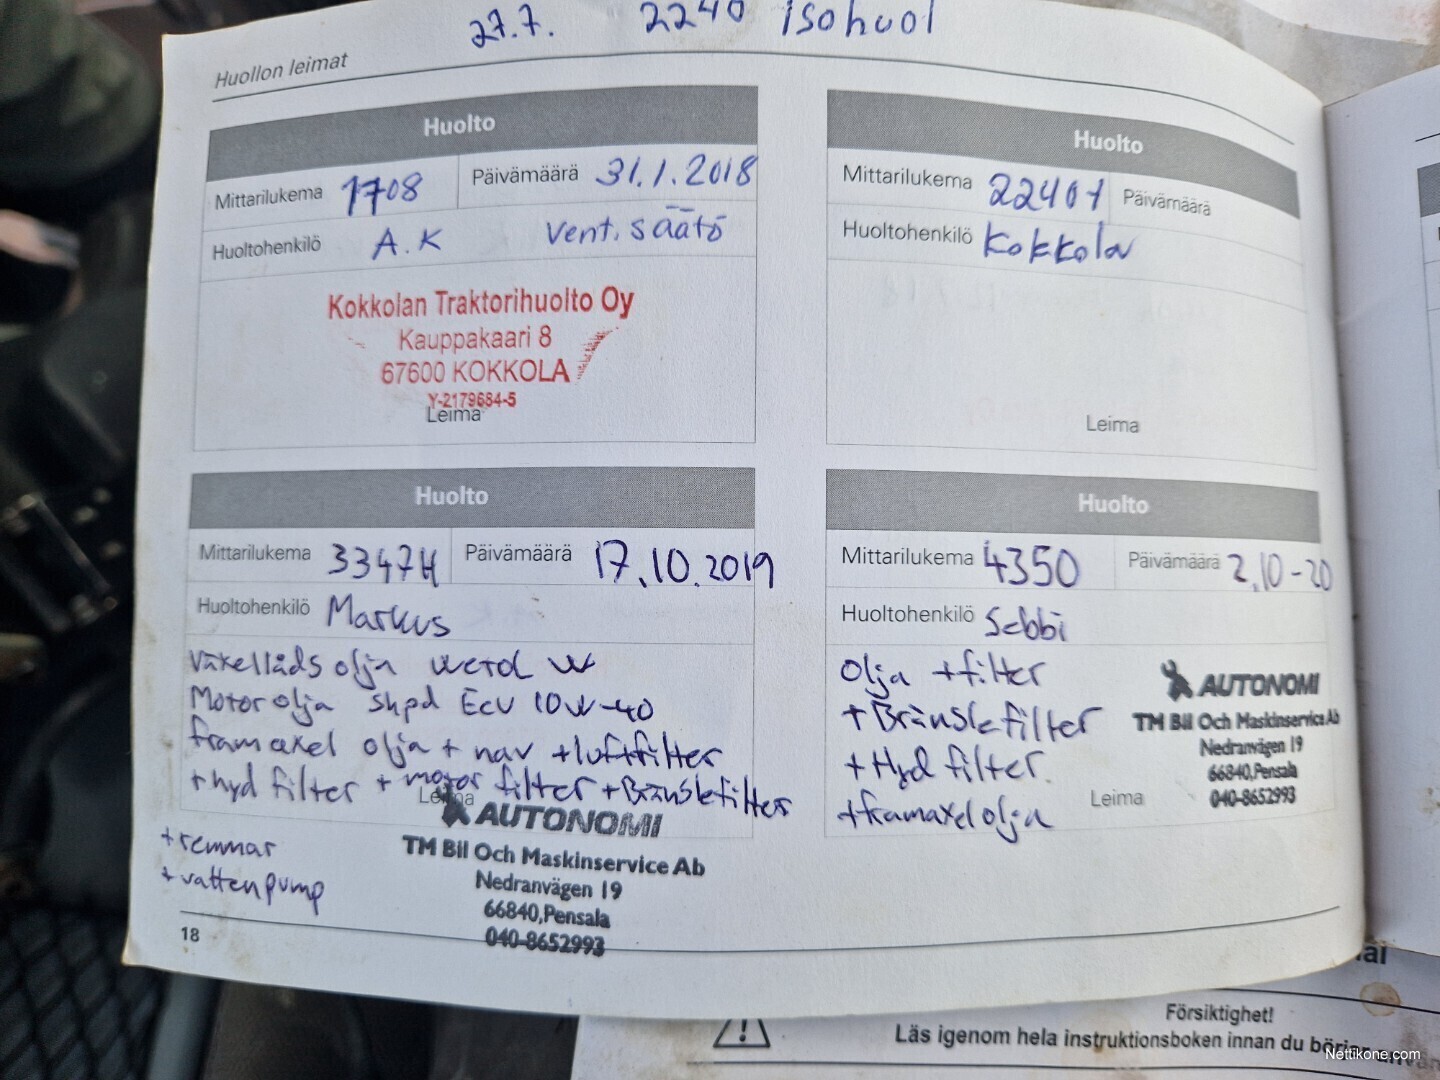 27.7. 2240 isohuol
Huollon leimat
Huolto
Mittarilukema 1708 Päivämäärä 31.1.2018
Huoltohenkilö A.K vent. säätö
Kokkolan Traktorihuolto Oy
Kauppakaari 8
67600 KOKKOLA
Y-2179684-5
Leima
Huolto
Mittarilukema 2240t Päivämäärä
Huoltohenkilö Kokkola
Leima
Huolto
Mittarilukema 3347H Päivämäärä 17.10.2019
Huoltohenkilö Markus
Växellåds olja
Motor olja shpd Ecu 10w-40
framaxel olja + nav + luftfilter
+ hyd filter + motor filter + Bränslefilter
Leima
+ remmar
+ vattenpump
AUTONOMI
TM Bil Och Maskinservice Ab
Nedranvägen 19
66840,Pensala
040-8652993
Huolto
Mittarilukema 4350 Päivämäärä 2.10-20
Huoltohenkilö Sebbi
Olja + filter
+ Bränslefilter
+ Hyd filter.
+ framaxel olja
AUTONOMI
TM Bil Och Maskinservice Ab
Nedranvägen 19
66840,Pensala
040-8652993
Leima
18
Försiktighet!
Läs igenom hela instruktionsboken innan du börjar
Nettikone.com